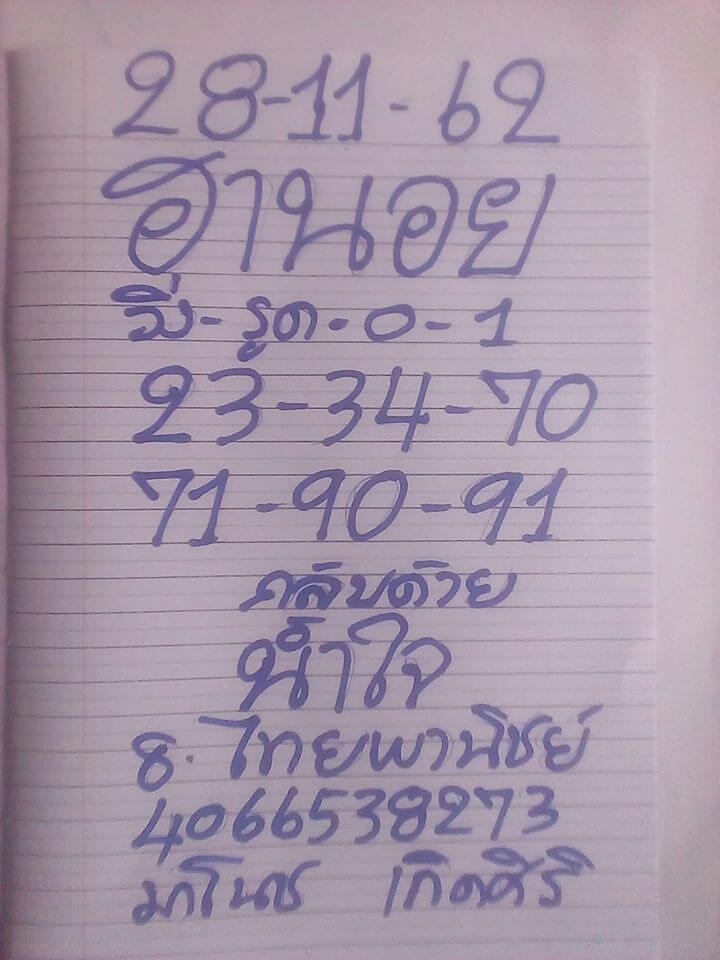 28-11-62
ฮานอย
วิ่ง-รูด-0-1
23-34-70
71-90-91
กลับด้วย
น้ำใจ
ธ. ไทยพานิชย์
4066538273
มาโนช เกิดศิริ